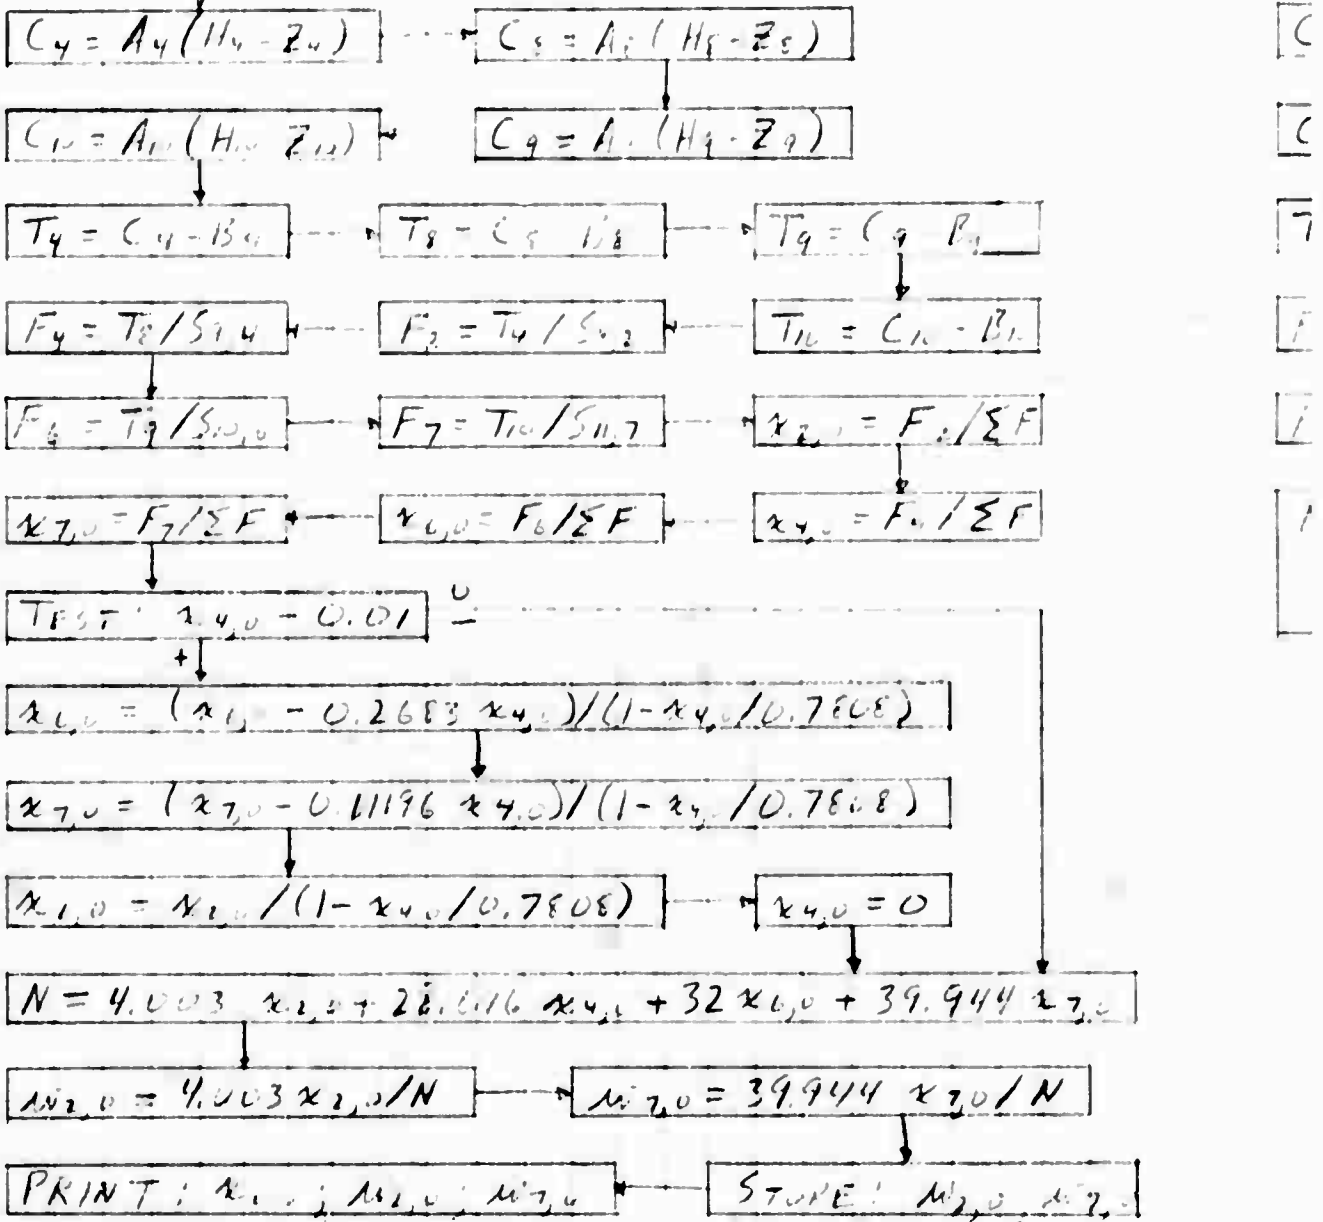 C₄ = A₄(H₄ - Z₄) C₈ = A₈(H₈ - Z₈)
C₁₀ = A₁₀(H₁₀ Z₁₀) C₉ = A (H₉ - Z₉)
T₄ = C₄ - B₄ T₈ = C₈ B₈ T₉ = C₉ B₉
F₄ = T₈/S₉,₄ F₂ = T₄/S₈,₂ T₁₀ = C₁₀ - B₁₀
F₆ = T₉/S₁₀,₆ F₇ = T₁₀/S₁₁,₇ x₂, = F₂/ΣF
x₇,₀ = F₇/ΣF x₆,₀ = F₆/ΣF x₄,₀ = F₄/ΣF
TEST: x₄,₀ - 0.01 0
+ —
x₆,₀ = (x₆, - 0.2683 x₄,₀)/(1 - x₄,₀/0.7808)
x₇,₀ = (x₇,₀ - 0.01196 x₄,₀)/(1 - x₄,/0.7808)
x₂,₀ = x₂,₀/(1 - x₄,₀/0.7808) x₄,₀ = 0
N = 4.003 x₂,₀ + 28.016 x₄,₀ + 32 x₆,₀ + 39.944 x₇,₀
w₂,₀ = 4.003 x₂,₀/N w₇,₀ = 39.944 x₇,₀/N
PRINT: x ; w₂,₀; w₇,₀ STORE: w₂,₀ w₇,